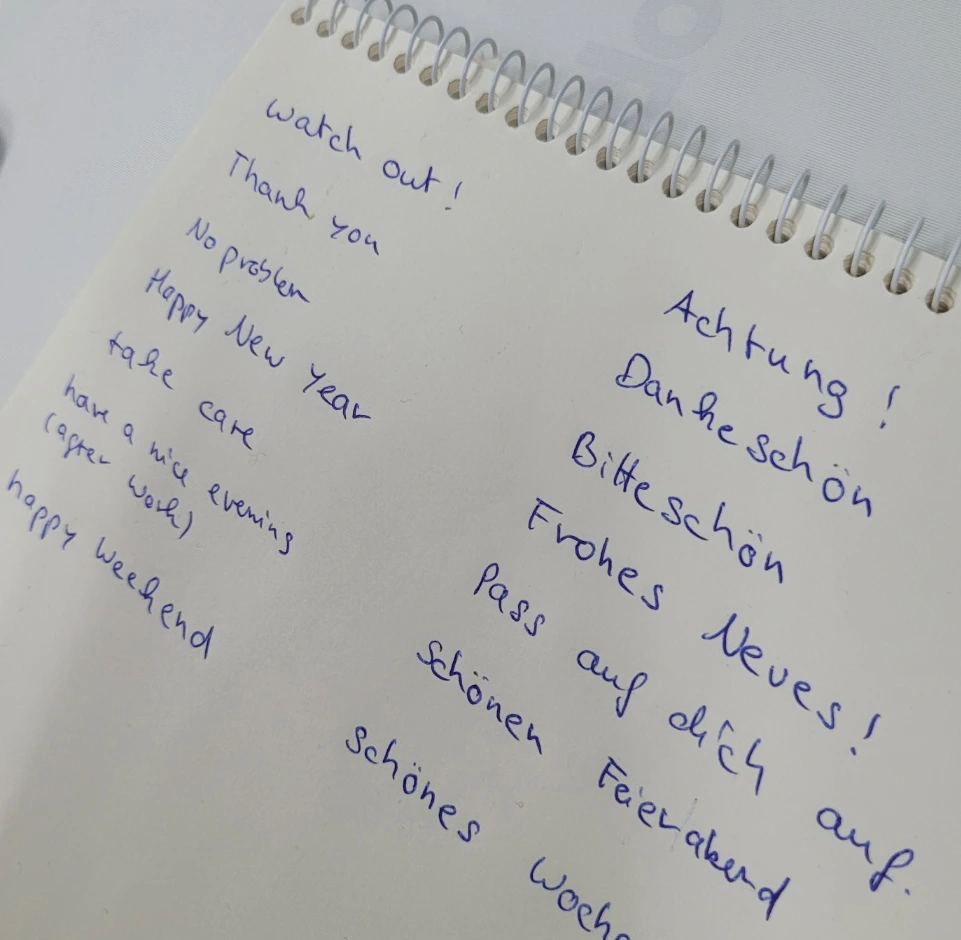 watch out!
Thank you
No problem
Happy New Year
take care
have a nice evening
(after work)
happy weekend
Achtung!
Dankeschön
Bitteschön
Frohes Neues!
Pass auf dich auf.
Schönen Feierabend
Schönes